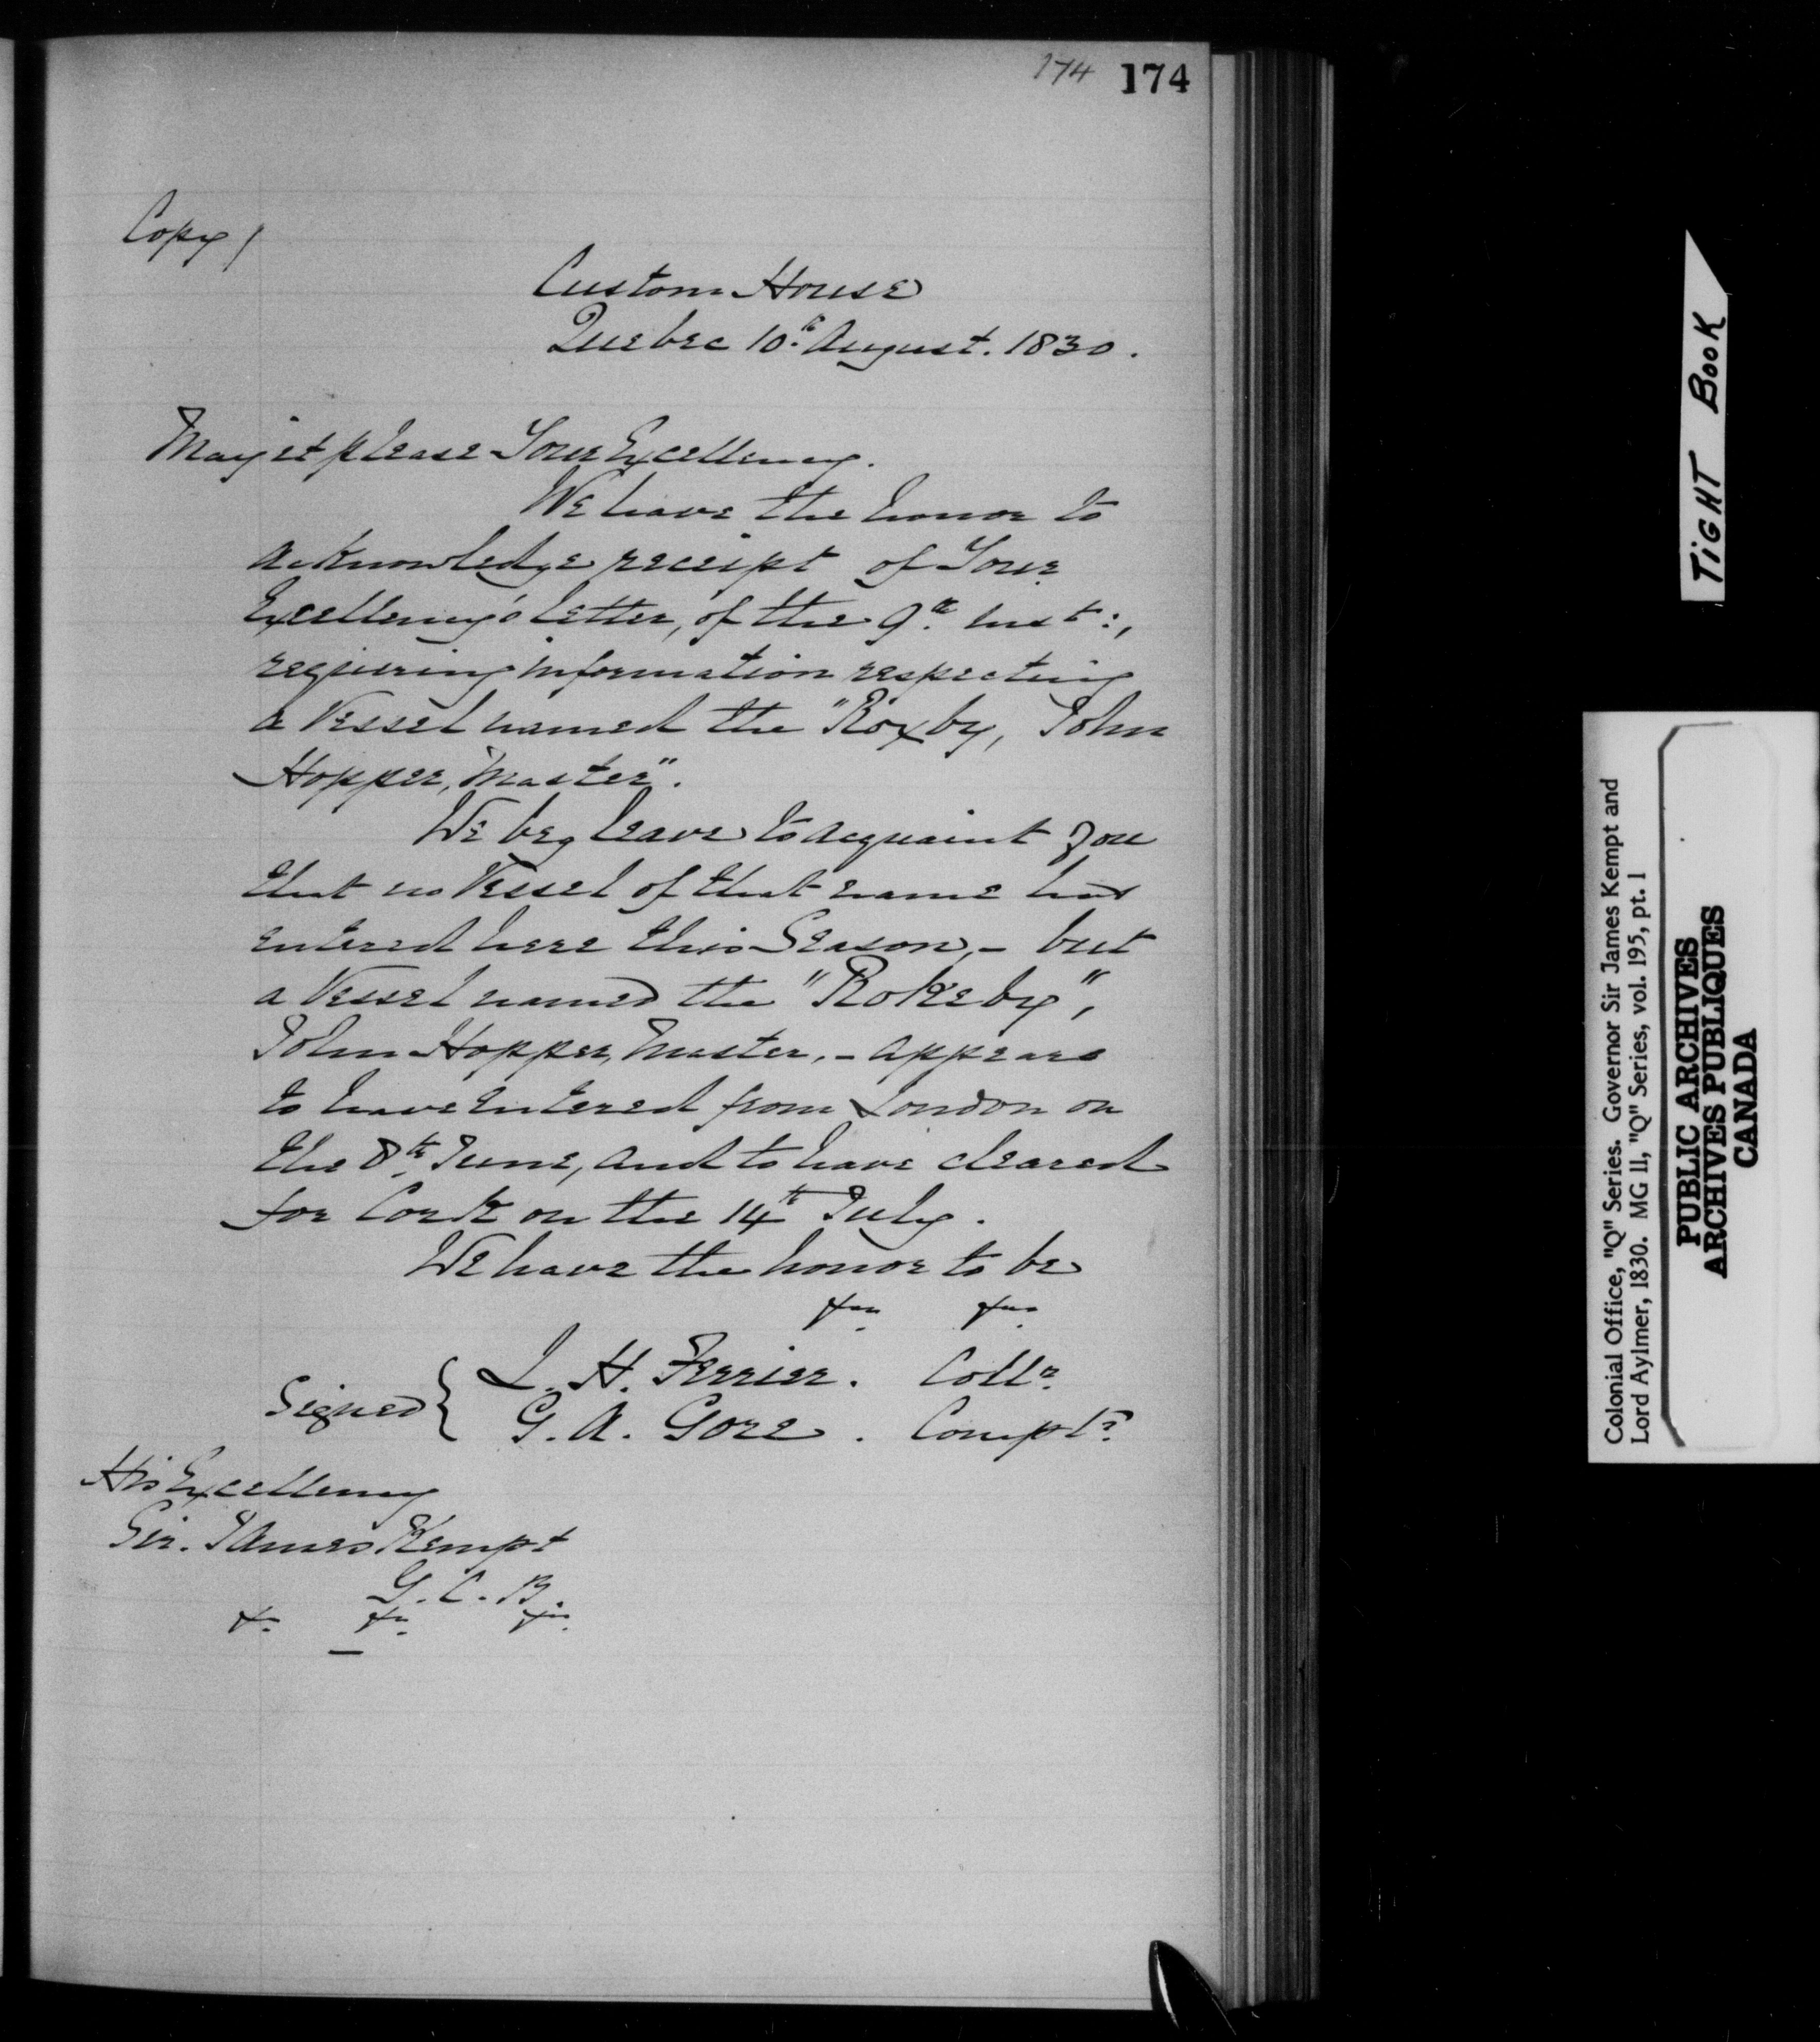 174 174
Copy /
Custom House
Quebec 10th August. 1830.
May it please Your Excellency.
We have the honor to
acknowledge receipt of Your
Excellency's letter, of the 9th. Inst:,
requiring information respecting
a Vessel named the "Roxby, John
Hopper, Master".
We beg leave to acquaint you
that no Vessel of that name has
entered here this Season, - but
a Vessel named the "Rokeby",
John Hopper, Master, - appears
to have entered from London on
the 8th June, and to have cleared
for Cork on the 14th July.
We have the honor to be
&c. &c.
Signed { J. H. Ferrier. Collr.
G. A. Gore. Complr.
His Excellency
Sir. James Kempt
G. C. B.
&c. &c. &c.
TIGHT BOOK
Colonial Office, "Q" Series. Governor Sir James Kempt and
Lord Aylmer, 1830. MG 11, "Q" Series, vol. 195, pt. 1
PUBLIC ARCHIVES
ARCHIVES PUBLIQUES
CANADA